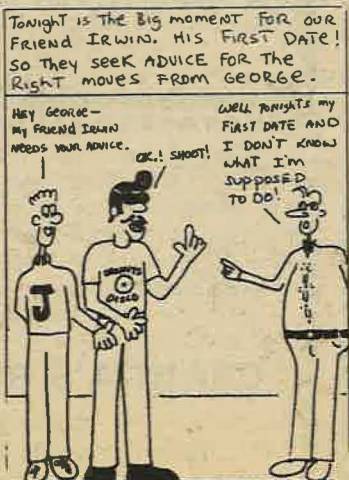 TONIGHT IS THE BIG MOMENT FOR OUR
FRIEND IRWIN. HIS FIRST DATE!
SO THEY SEEK ADVICE FOR THE
RIGHT MOVES FROM GEORGE.
HEY GEORGE—
MY FRIEND IRWIN
NEEDS YOUR ADVICE.
OK.! SHOOT!
WELL TONIGHTS MY
FIRST DATE AND
I DON'T KNOW
WHAT I'M
SUPPOSED
TO DO!
J
DISCO